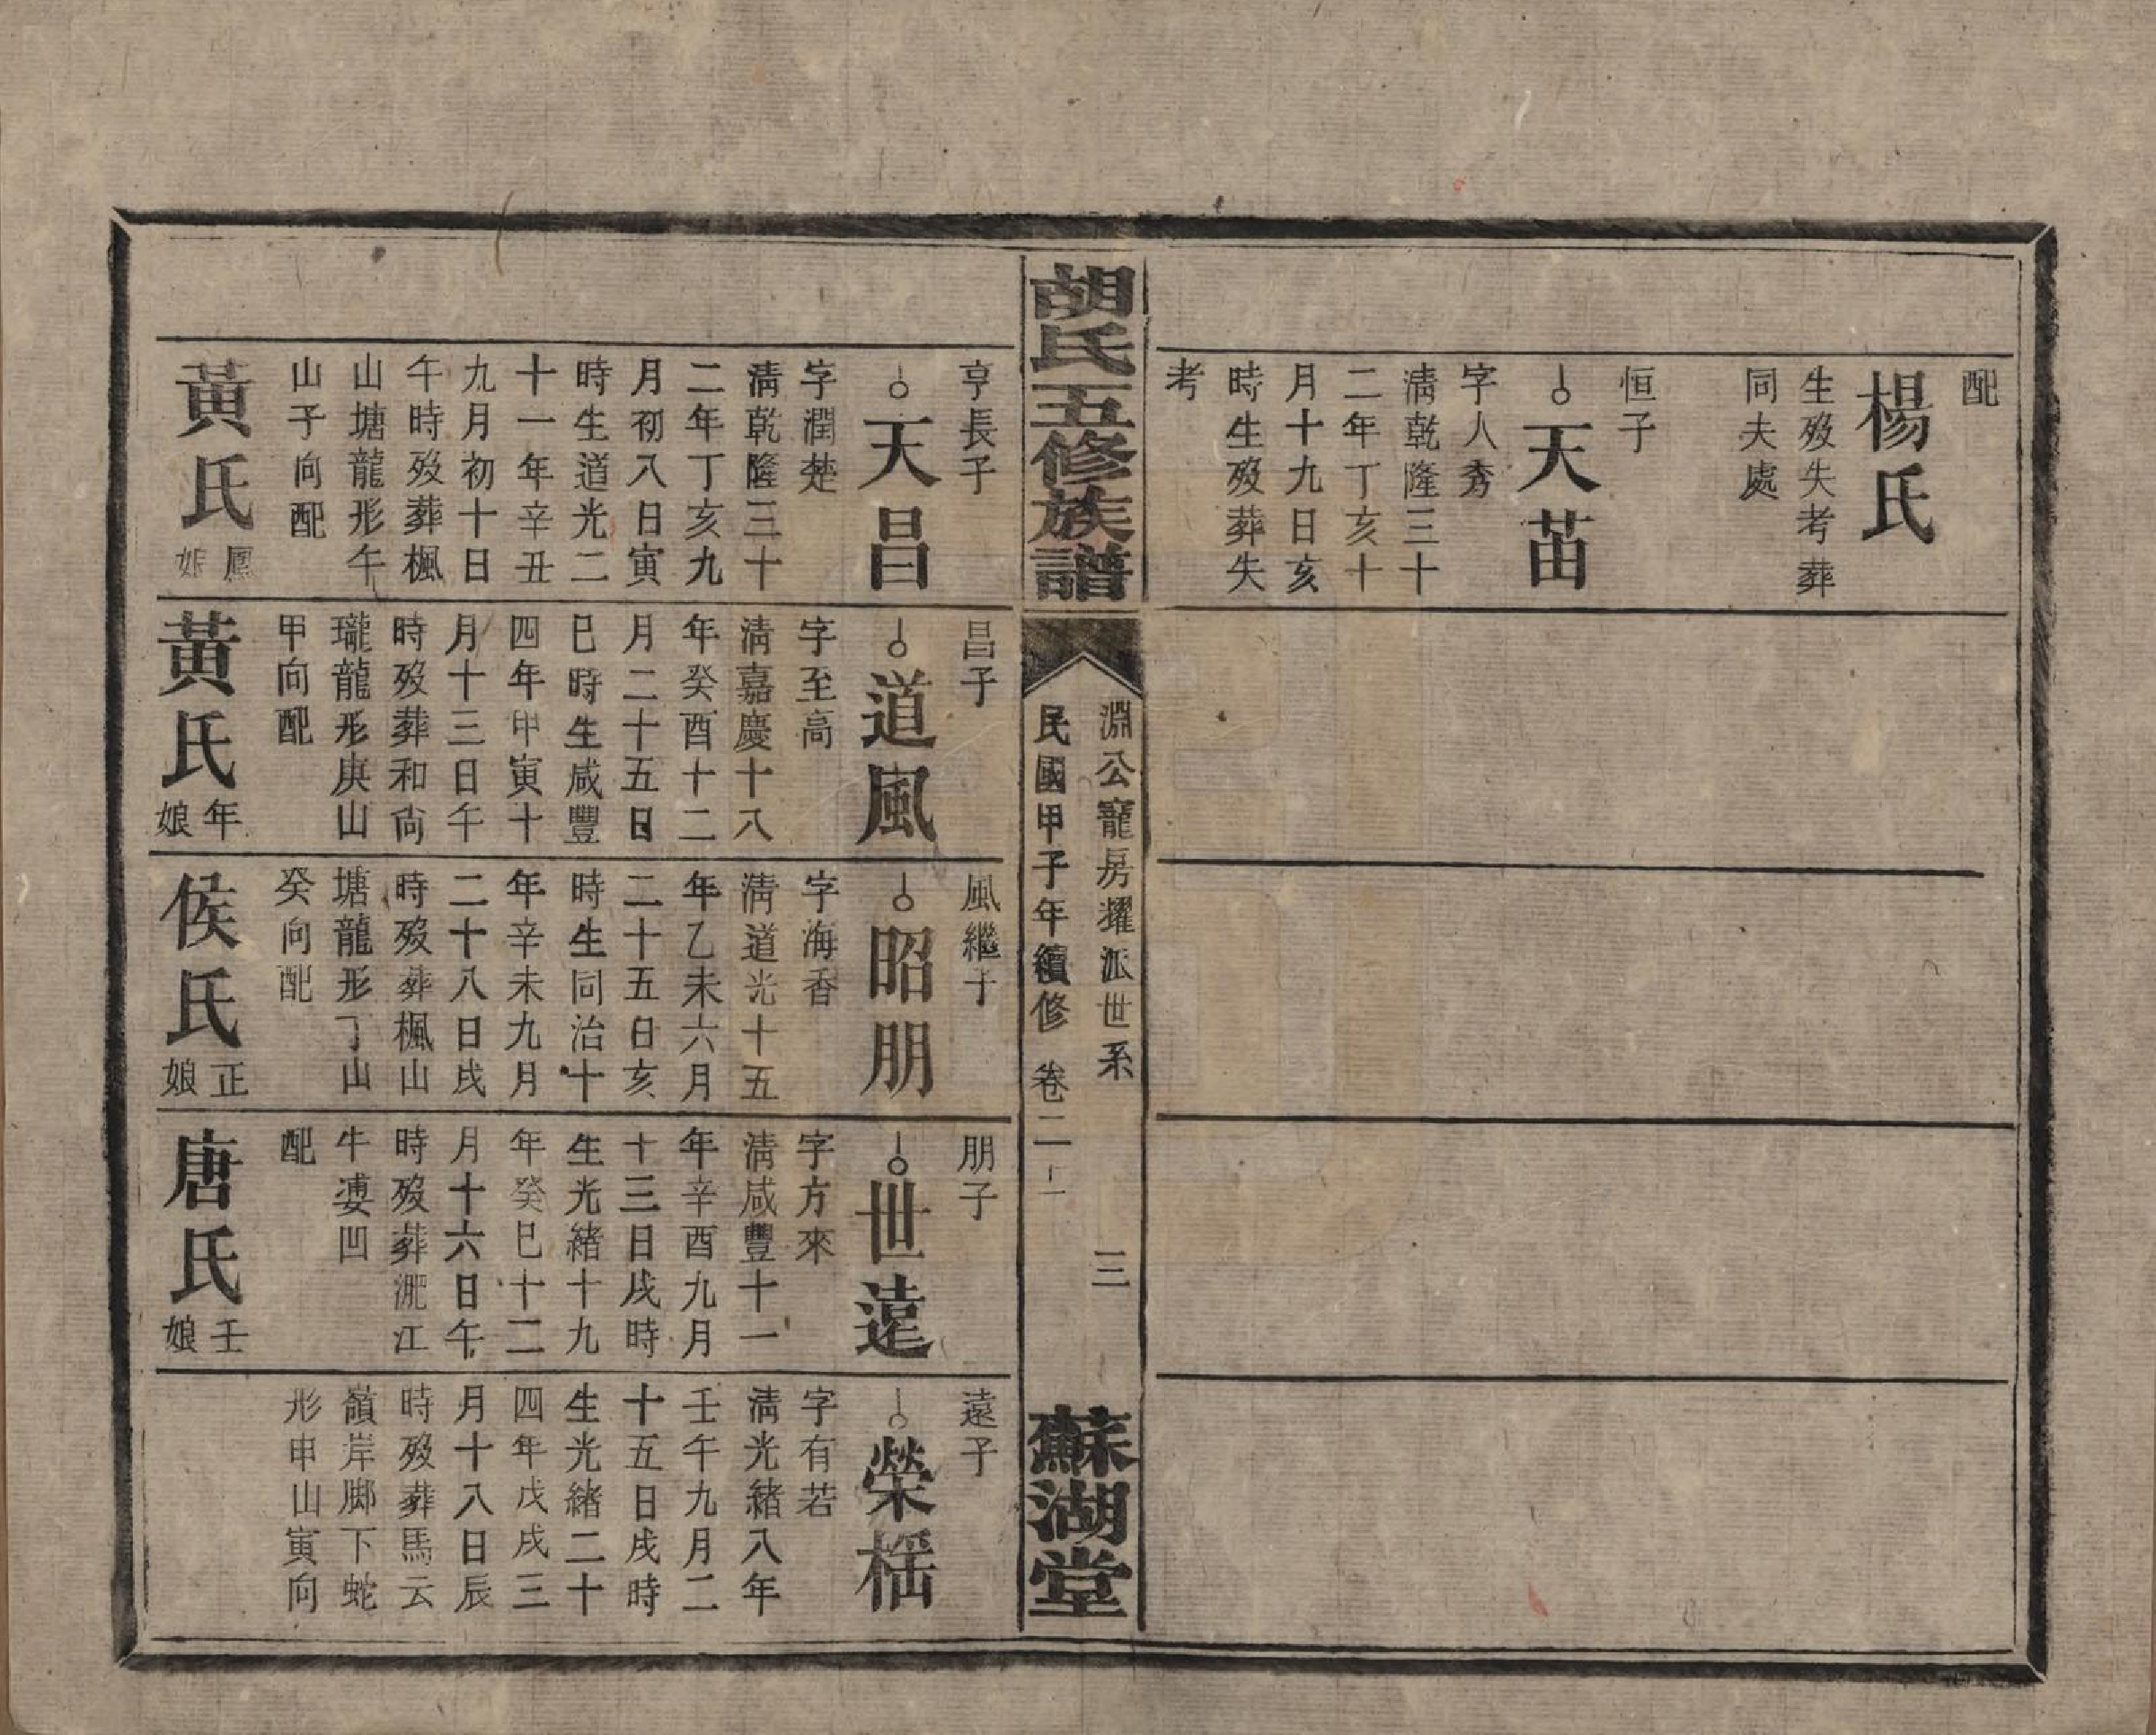 配
楊氏
生歿失考葬
同夫處
恒子
天苗
字人秀
淸乾隆三十
二年丁亥十
月十九日亥
時生歿葬失
考
胡氏五修族譜
淵公寵房耀派世系
三
民國甲子年續修
卷二
蘇湖堂
亨長子
天昌
字潤楚
淸乾隆三十
二年丁亥九
月初八日寅
時生道光二
十一年辛丑
九月初十日
午時歿葬楓
山塘龍形午
山子向配
黃氏
鳳娘
昌子
道風
字至高
淸嘉慶十八
年癸酉十二
月二十五日
巳時生咸豐
四年甲寅十
月十三日午
時歿葬和尙
瓏龍形庚山
甲向配
黃氏
年娘
風繼子
昭朋
字海香
淸道光十五
年乙未六月
二十五日亥
時生同治十
年辛未九月
二十八日戌
時歿葬楓山
塘龍形丁山
癸向配
侯氏
正娘
朋子
世遠
字方來
淸咸豐十一
年辛酉九月
十三日戌時
生光緒十九
年癸巳十二
月十六日午
時歿葬江
牛婆凹
配
唐氏
壬娘
遠子
榮
字有若
淸光緒八年
壬午九月二
十五日戌時
生光緒二十
四年戊戌三
月十八日辰
時歿葬馬云
嶺岸脚下蛇
形申山寅向